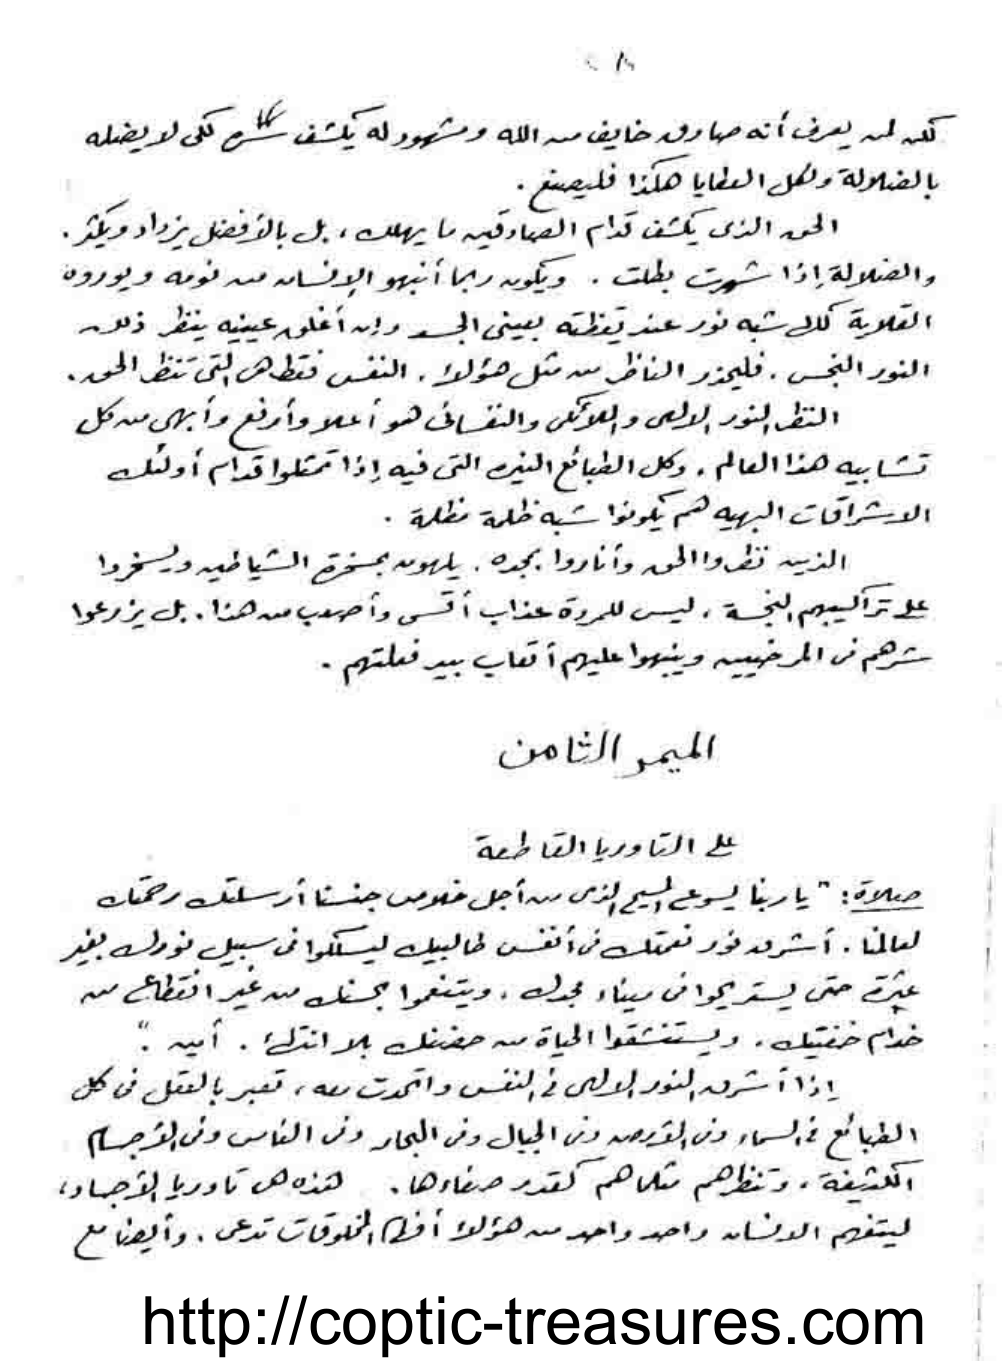 لكن لمن يعرف أنه صادق خايف من الله ومشهود له يكشف كل سره لكي لا يضله
بالضلالة ولكل العطايا هكذا فليصنع .
الحق الذى يكشف قدام الصادقين ما يهلك ، بل بالأفضل يزداد ويكثر .
والضلالة إذا شهرت بطلت . ويكون ربما أنبهوا الإنسان من نومه ويوروه
القلاية كلها شبه نور عند يقظته بعيني الجسد وإن أغلق عينيه ينظر ذلك
النور النجس . فليحذر الناظر من مثل هؤلاء . النفس فقط هى التى تنظر الحق .
النظر النور الالهى والملائكى والنفسانى هو أعلا وأرفع وأبهى من كل
تشابيه هذا العالم . وكل الطبائع النيره التى فيه إذا تمثلوا قدام أولئك
الاشراقات البهيه هم يكونوا شبه ظلمة مظلمة .
الذين نظروا الحق وأناروا بمجده . يلهون بمسخرة الشياطين ويسخروا
على تراكيبهم النجسة . ليس للمردة عذاب أقسى وأصعب من هذا . بل يزرعوا
شرهم فى المرضيين وينبهوا عليهم أتعاب بيد فعلتهم .
الميمر الثامن
على التاوريا القاطعة
صلاة : " يا ربنا يسوع المسيح الذى من أجل خلاص جنسنا أرسلتك رحمتك
لعالمنا . أشرق نور نعمتك فى أنفس طالبيك ليسلكوا فى سبيل نورك بغير
عثرة حتى يستريحوا فى ميناء مجدك . ويتنعموا بحسنك من غير انقطاع من
خدام خفيتك . ويستنشقوا الحياة من حضنك بلا انتهاء . أمين " .
إذا أشرق النور الالهى فى النفس واتحدت معه ، تعبر بالعقل فى كل
الطبائع فى السماء وفى الأرض وفى الجبال وفى البحار وفى الناس وفى الأجسام
الكثيفة ، وتنظرهم مثلما هم كقدر صفاءها . هذه هى تاوريا الأجساد ،
ليتفهم الانسان واحد واحد من هؤلاء المخلوقات تدعى . وأيضا مع
http://coptic-treasures.com